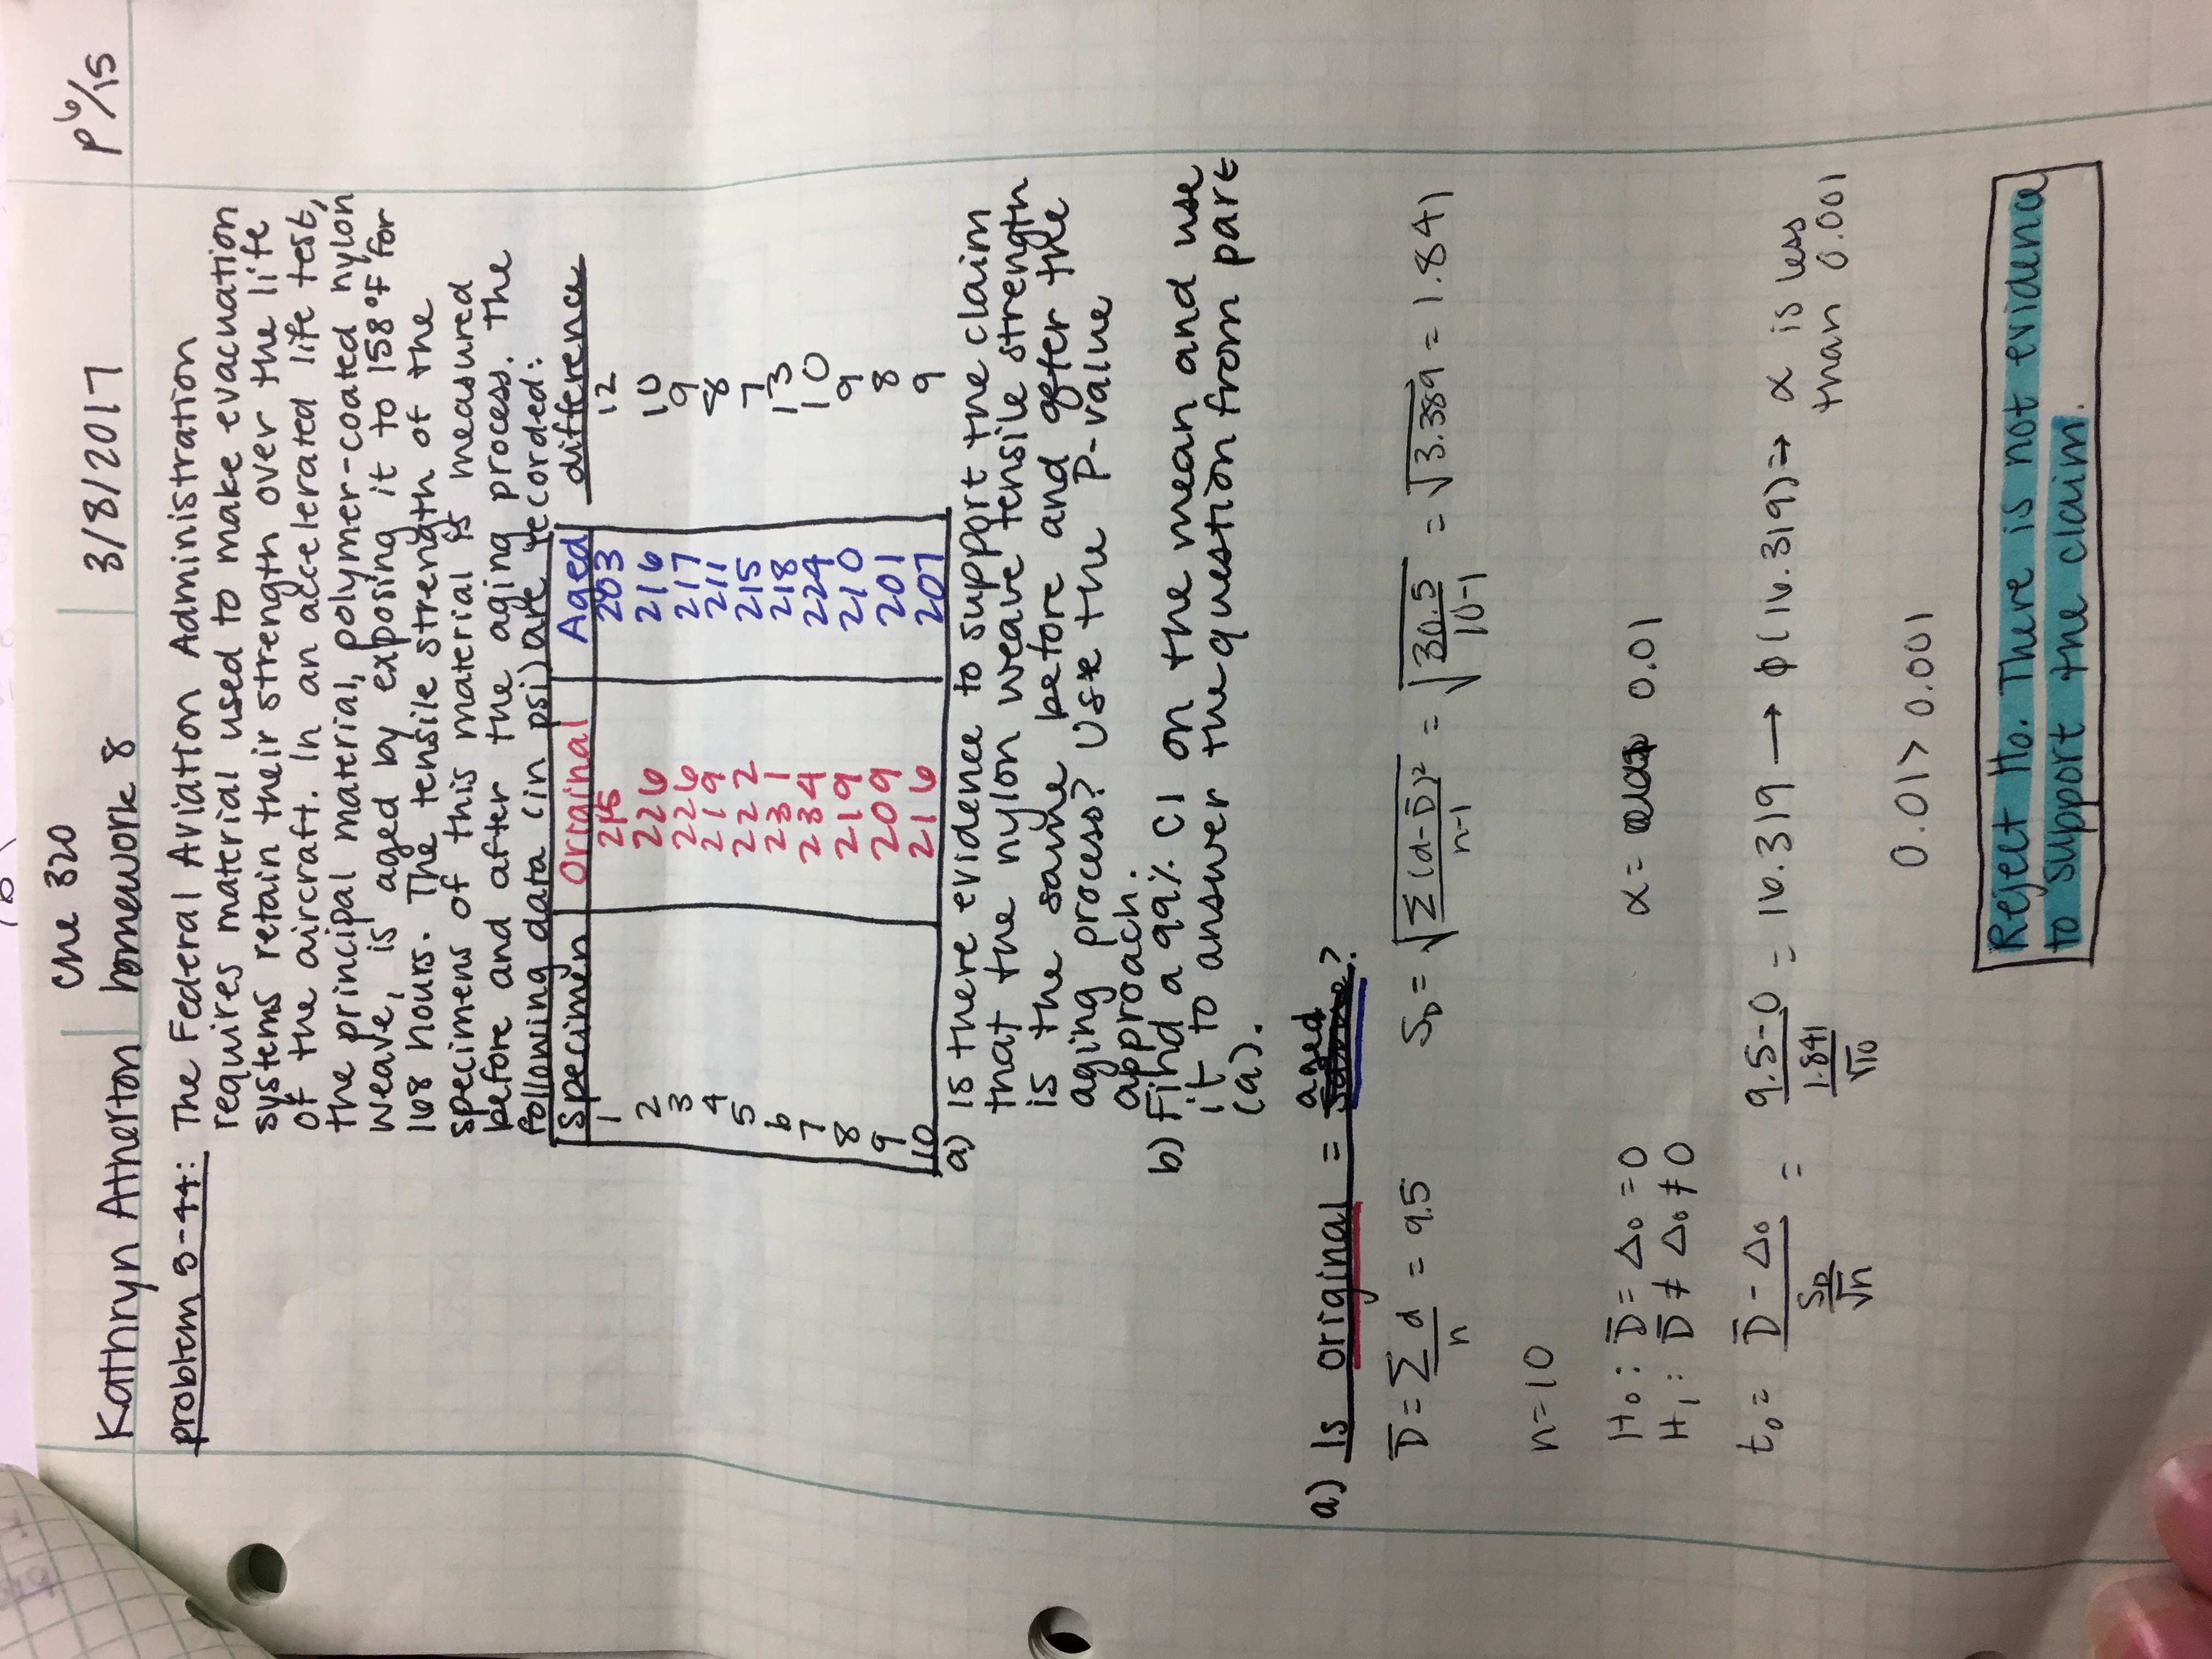 (b)
Che 320
Kathryn Atherton homework 8 3/8/2017 P 6/15
problem 5-44: The Federal Aviation Administration
requires material used to make evacuation
systems retain their strength over the life
of the aircraft. In an accelerated life test,
the principal material, polymer-coated nylon
weave, is aged by exposing it to 158°F for
168 hours. The tensile strength of the
specimens of this material is measured
before and after the aging process. The
following data (in psi) are recorded:
Specimen Original Aged difference
1 215 203 12
2 226 216 10
3 226 217 9
4 219 211 8
5 222 215 7
6 231 218 13
7 234 224 10
8 219 210 9
9 209 201 8
10 216 207 9
a) Is there evidence to support the claim
that the nylon weave tensile strength
is the same before and after the
aging process? Use the P-value
approach.
b) Find a 99% CI on the mean and use
it to answer the question from part
(a).
aged
a) Is original = same?
D̄ = Σd/n = 9.5 S_D = √(Σ(d-D̄)²/n-1) = √(30.5/10-1) = √3.389 = 1.841
n=10
H₀: D̄ = Δ₀ = 0 α = 0.01
H₁: D̄ ≠ Δ₀ ≠ 0
t₀ = D̄ - Δ₀ / S_D/√n = 9.5-0 / 1.841/√10 = 16.319 → φ(16.319) ⇒ α is less
than 0.001
0.01 > 0.001
Reject H₀. There is not evidence
to support the claim.